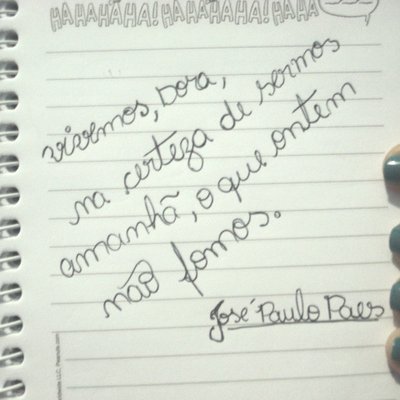 HAHAHAHA! HAHAHAHA! HAHA
vivemos, Dora,
na certeza de sermos
amanhã, o que ontem
não fomos.
José Paulo Paes